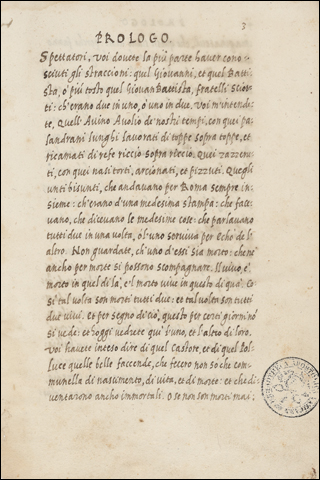 3
PROLOGO.
Spettatori, voi dovete la più parte haver cono-
sciuti gli straccioni: quel Giovanni, et quel Batti-
sta, ò più tosto quel Giovan Battista, fratelli Sciot-
ti: ch'erano due in uno, ò uno in due. Voi m'intende-
te, Quell'Avino Avolio de nostri tempi, con qui pa-
landrani lunghi lavorati di toppe sopra toppe, et
ricamati di refe riccio sopra riccio. Quei zazzeru-
ti, con quei nasi torti, arcionati, et pizzuti. Quegli
unti bisunti, che andavano per Roma sempre in-
sieme: ch'erano d'una medesima stampa: che face-
vano, che dicevano le medesime cose: che parlavano
tutti due in una volta, ò l'uno serviva per Echo de l'
altro. Non guardate, ch'uno d'essi sia morto: che ne
ancho per morte si possono scompagnare. Il vivo, è
morto in quel di là, e'l morto vive in questo di quà: Co
si tal volta son morti tutti due: et tal volta son tutti
dui vivi. Et per segno di ciò, questo per certi giorni nō
si vede: et hoggi vedrete qui l'uno, et l'altro di loro.
Voi havete inteso dire di quel Castore, et di quel Pol-
luce quelle belle faccende, che fecero non sò che com-
munella di nascimento, di vita, et di morte: et che di-
ventarono ancho immortali. O se non son morti mai: